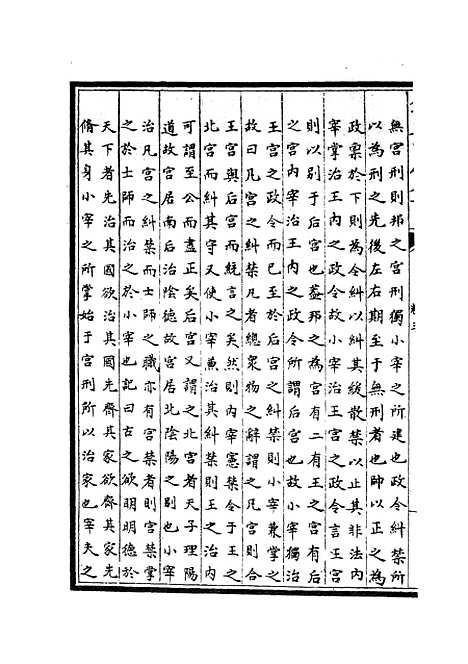 無宮刑則邦之宮刑獨小宰之所建也政令糾禁所
以為刑之先後左右期至于無刑者也帥以正之為
政禀於下則為令糾以糾其緩散禁以止其非法内
宰掌治王内之政令故小宰治王宫之政令言王宫
則以别于后宫也葢邦之為宫有二有王之宫有后
之宫内宰治王内之政令所謂后宫也故小宰獨治
王宫之政令而已至於宫之糾禁則小宰兼掌之
故曰凡宫之糾禁凡者總衆物之辭謂之凡宫則合
王宫與后宫而統言之矣然則内宰憲禁令于王之
北宫而糾其守又使小宰兼治其糾禁則王之治内
可謂至公而盡正矣后宫又謂之北宫者天子理陽
道故宫居南后治陰德故宫居北陰陽之别也小宰
治凡宫之糾禁而士師之職亦有宫禁者則宫禁掌
之於士師而治之於小宰也記曰古之欲明明德於
天下者先治其國欲治其國先齊其家欲齊其家先
脩其身小宰之所掌始于宫刑所以治家也宰夫之